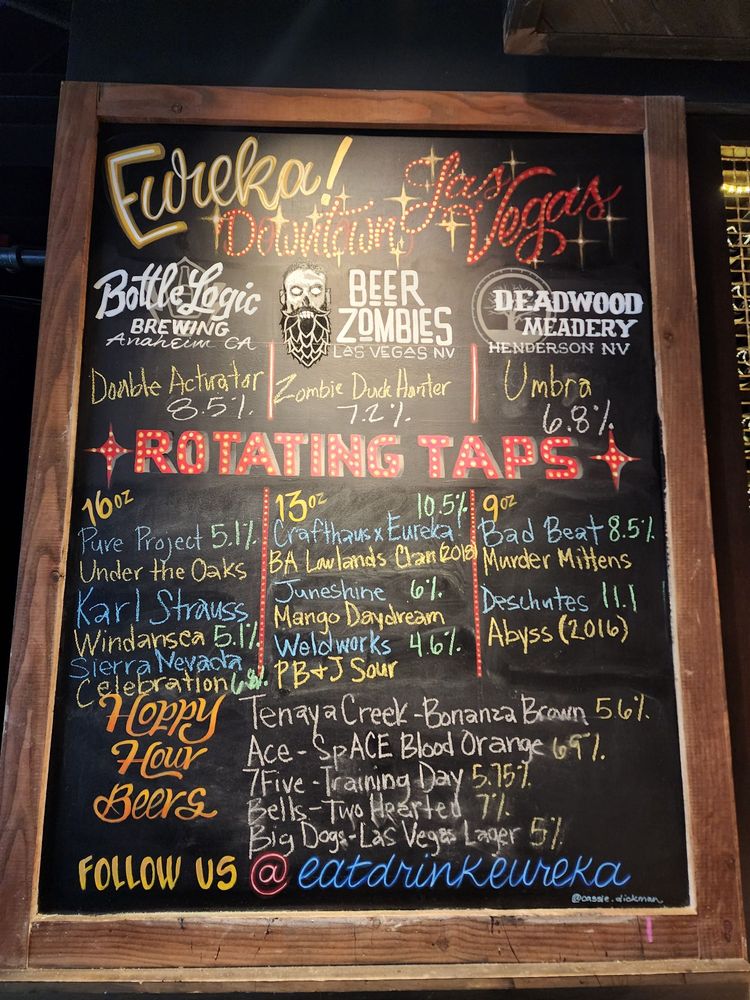 Eureka!
Downtown Las Vegas
Bottle Logic
BREWING
Anaheim CA
Double Activator
8.5%
BEER
ZOMBIES
LAS VEGAS NV
Zombie Duck Hunter
7.2%
DEADWOOD
MEADERY
HENDERSON NV
Umbra
6.8%
ROTATING TAPS
16oz
Pure Project 5.1%
Under the Oaks
Karl Strauss
Windansea 5.1%
Sierra Nevada
Celebration 6.8%
13oz 10.5%
Crafthaus x Eureka!
BA Lowlands Clan (2018)
Juneshine 6%
Mango Daydream
Weldworks 4.6%
PB+J Sour
9oz
Bad Beat 8.5%
Murder Mittens
Deschutes 11.1
Abyss (2016)
Hoppy
Hour
Beers
Tenaya Creek - Bonanza Brown 5.6%
Ace - SpACE Blood Orange 6.9%
7Five - Training Day 5.75%
Bells - Two Hearted 7%
Big Dogs - Las Vegas Lager 5%
FOLLOW US @ eatdrinkeureka
@cassie.dickman